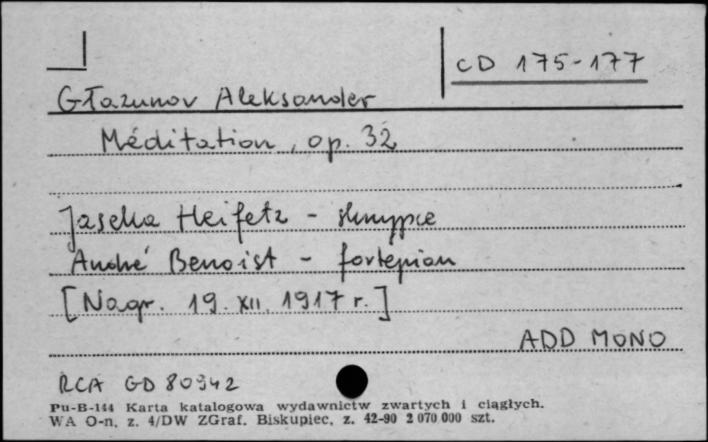 CD 175-177
Głazunov Aleksander
Méditation, op. 32
Jascha Heifetz - skrzypce
André Benoist - fortepian
[Nagr. 19. XII. 1917 r.]
ADD MONO
RCA GD 80942
Pu-B-144 Karta katalogowa wydawnictw zwartych i ciągłych.
WA O-n. z. 4/DW ZGraf. Biskupiec, z. 42-90 2 070 000 szt.